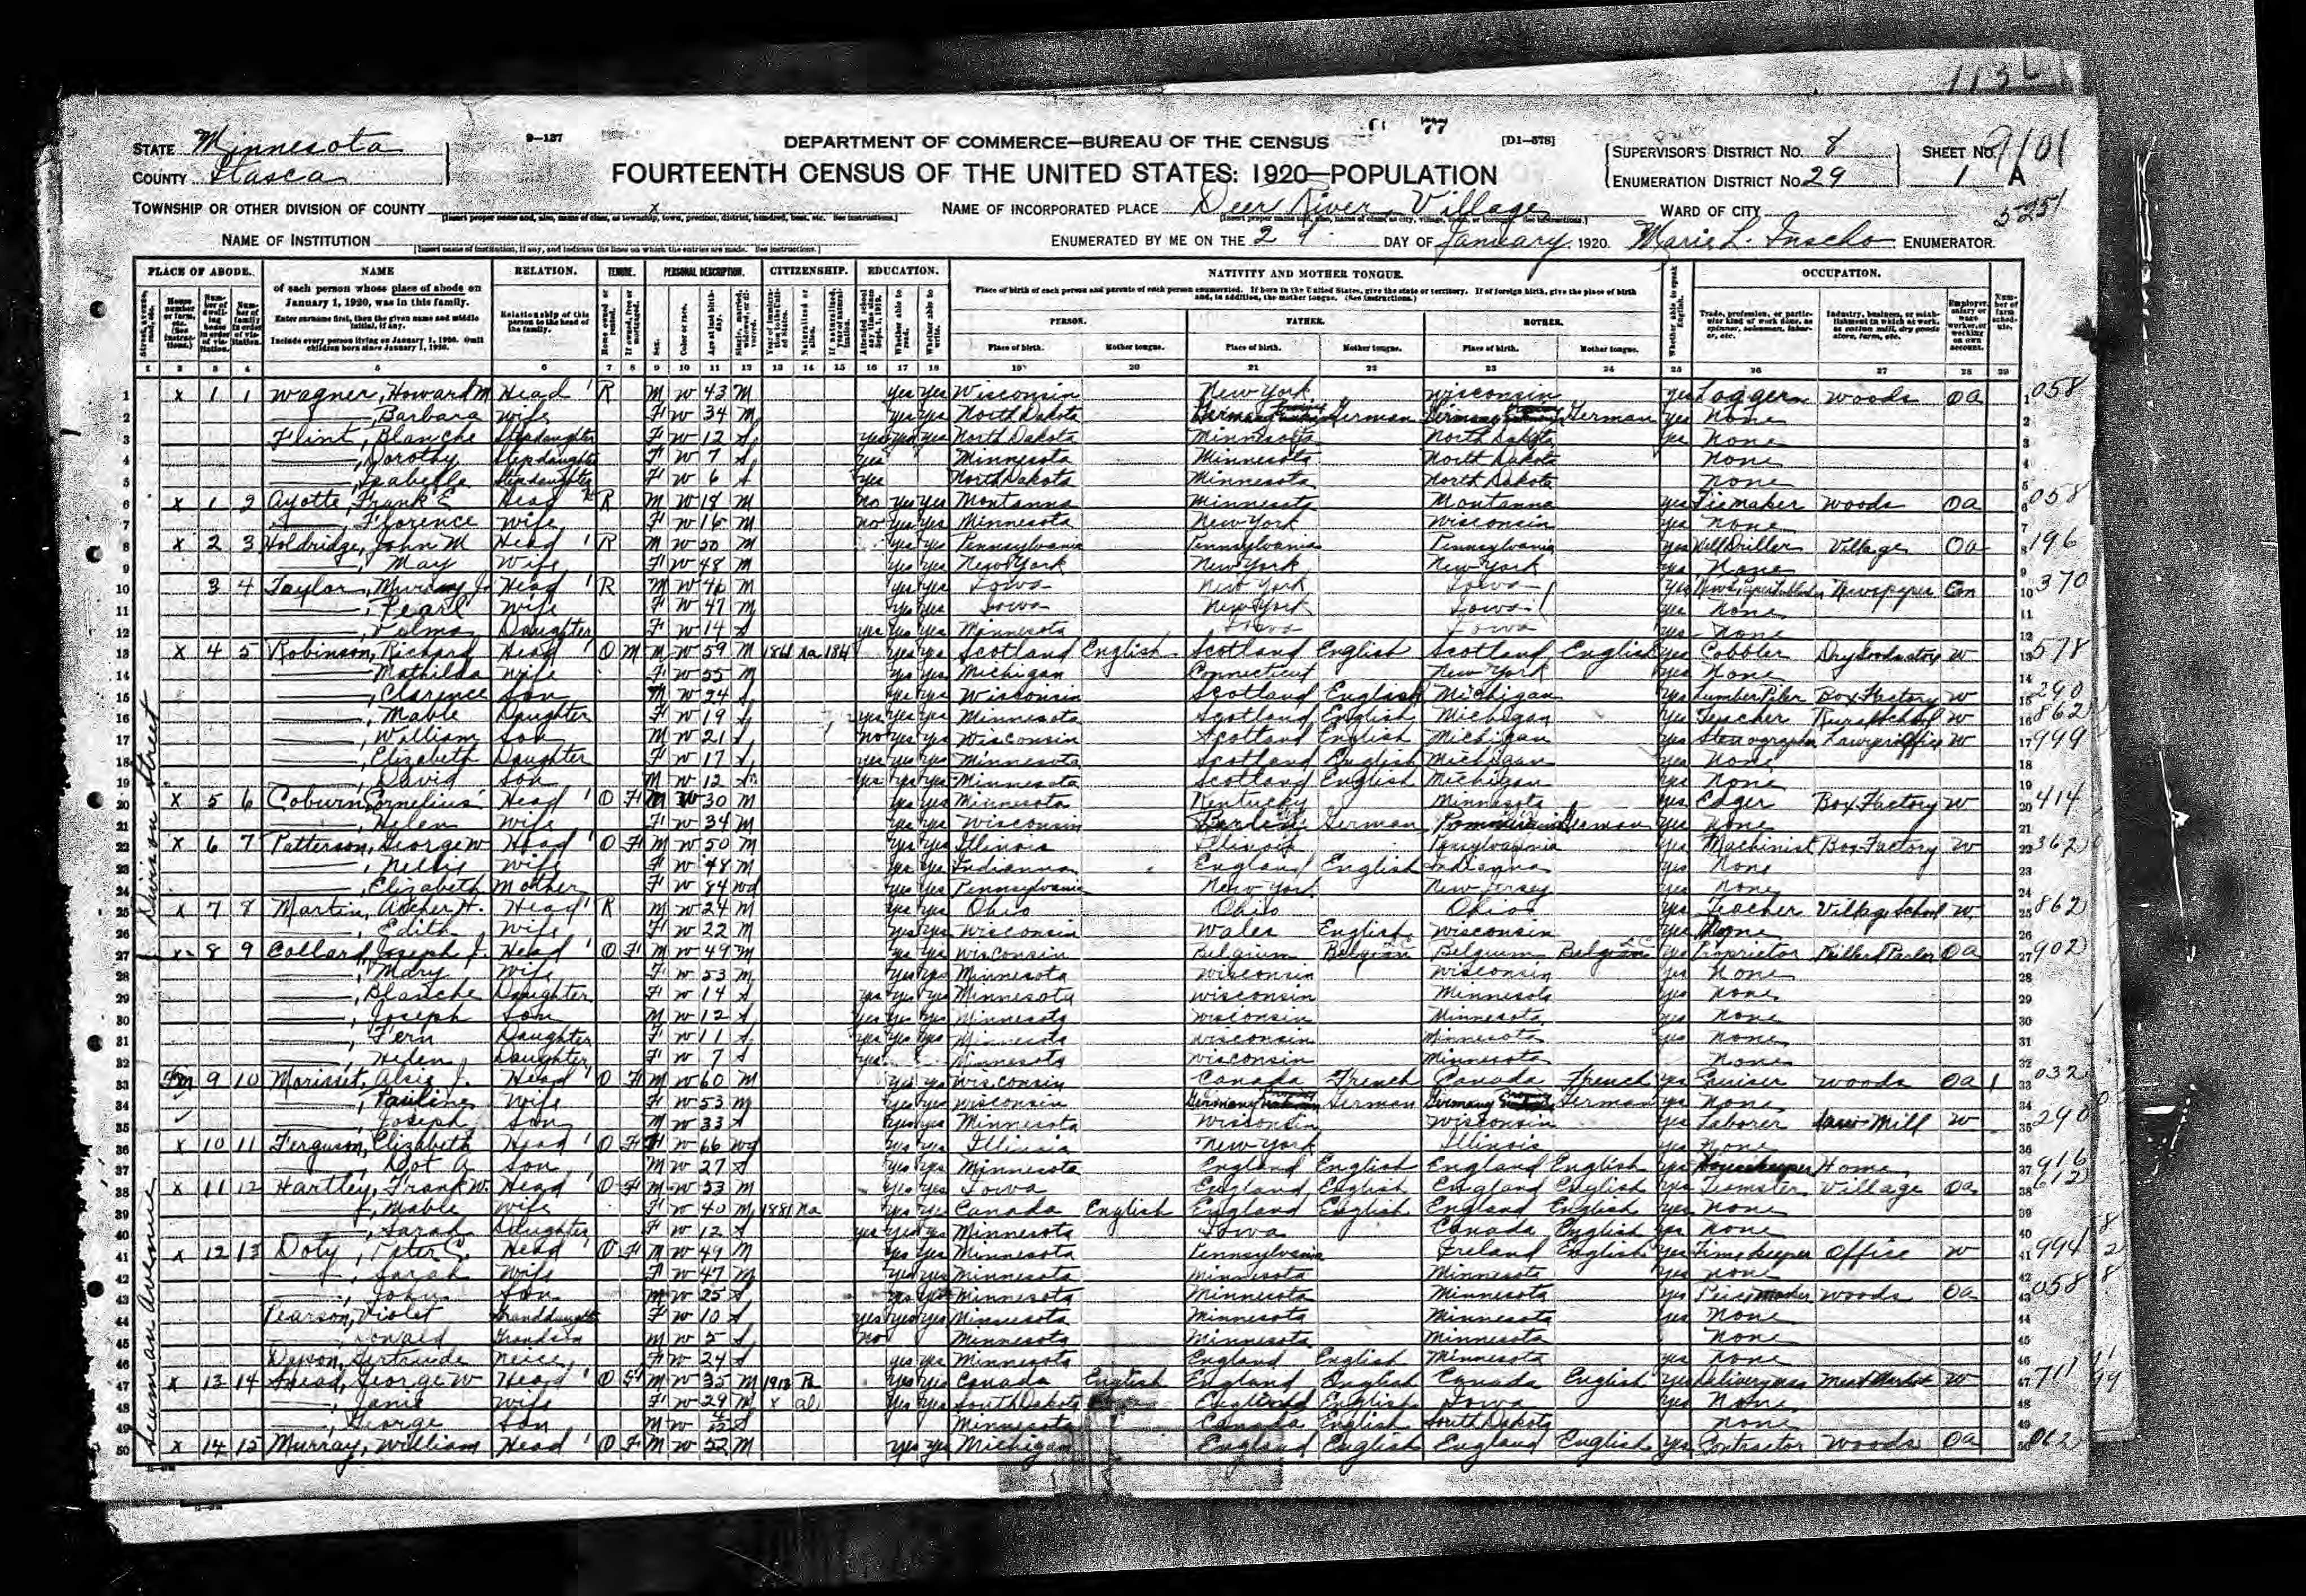 113
STATE Minnesota
COUNTY Itasca
9-137
DEPARTMENT OF COMMERCE—BUREAU OF THE CENSUS
77
[D1-578]
FOURTEENTH CENSUS OF THE UNITED STATES: 1920—POPULATION
SUPERVISOR'S DISTRICT NO. 8
ENUMERATION DISTRICT NO. 29
SHEET NO. 1 A
9101
5251
TOWNSHIP OR OTHER DIVISION OF COUNTY x
NAME OF INCORPORATED PLACE Deer River Village
WARD OF CITY
NAME OF INSTITUTION
ENUMERATED BY ME ON THE 29 DAY OF January, 1920. Marie L. Inscho ENUMERATOR.
PLACE OF ABODE. NAME RELATION. TENURE. PERSONAL DESCRIPTION. CITIZENSHIP. EDUCATION. NATIVITY AND MOTHER TONGUE. OCCUPATION.
of each person whose place of abode on January 1, 1920, was in this family.
Enter surname first, then the given name and middle initial, if any.
Include every person living on January 1, 1920. Omit children born since January 1, 1920.
Relationship of this person to the head of the family.
Place of birth of each person and parents of each person enumerated. If born in the United States, give the state or territory. If of foreign birth, give the place of birth and, in addition, the mother tongue. (See instructions.)
PERSON. FATHER. MOTHER.
Place of birth. Mother tongue. Place of birth. Mother tongue. Place of birth. Mother tongue.
1 2 3 4 5 6 7 8 9 10 11 12 13 14 15 16 17 18 19 20 21 22 23 24 25 26 27 28 29
Division Street
1 x 1 1 Wagner, Howard M Head R M W 43 M yes yes Wisconsin New York Wisconsin yes Logger woods Oa 058
2 —, Barbara wife F W 34 M yes yes North Dakota Germany German Germany German yes None
3 Flint, Blanche Stepdaughter F W 12 S yes yes yes North Dakota Minnesota North Dakota yes None
4 —, Dorothy Stepdaughter F W 7 S yes Minnesota Minnesota North Dakota None
5 —, Isabelle Stepdaughter F W 6 S yes North Dakota Minnesota North Dakota None
6 x 1 2 Ayotte, Frank E Head R M W 18 M no yes yes Montanna Minnesota Montanna yes Tiemaker woods Oa 058
7 —, Florence wife F W 16 M no yes yes Minnesota New York Wisconsin yes None
8 x 2 3 Holdridge, John M Head R M W 50 M yes yes Pennsylvania Pennsylvania Pennsylvania yes Well Driller Village Oa 196
9 —, May Wife F W 48 M yes yes New York New York New York yes None
10 3 4 Taylor, Murray J. Head R M W 46 M yes yes Iowa New York Iowa yes Newspaper Em 370
11 —, Pearl Wife F W 47 M yes yes Iowa New York Iowa yes None
12 —, Daughter F W 14 S yes yes yes Minnesota Iowa Iowa yes None
13 x 4 5 Robinson, Richard Head O M M W 59 M na yes yes Scotland English Scotland English Scotland English yes Cobbler W 578
14 — Mathilda wife F W 55 M yes yes Michigan Connecticut New York yes None
15 —, Clarence Son M W 24 S yes yes Wisconsin Scotland English Michigan yes Lumber Piler Box Factory W 290
16 —, Mable Daughter F W 19 S yes yes yes Minnesota Scotland English Michigan yes Teacher Rural School W 862
17 —, William Son M W 21 S no yes yes Wisconsin Scotland English Michigan yes Stenographer W 999
18 —, Elizabeth Daughter F W 17 S yes yes yes Minnesota Scotland English Michigan yes None
19 —, David Son M W 12 S yes yes yes Minnesota Scotland English Michigan yes None
20 x 5 6 Coburn, Cornelius Head O F M W 30 M yes yes Minnesota Kentucky Minnesota yes Edger Box Factory W 414
21 —, Helen wife F W 34 M yes yes Wisconsin German German yes None
22 x 6 7 Patterson, George W Head O F M W 50 M yes yes Illinois Illinois yes Machinist Box Factory W 362
23 —, Nellie wife F W 48 M yes yes Indianna England English Indianna yes None
24 —, Elizabeth mother F W 84 Wd yes yes Pennsylvania New York New Jersey yes None
25 x 7 8 Martin, Archer H. Head R M W 24 M yes yes Ohio Ohio Ohio yes Teacher Village School W 862
26 —, Edith Wife F W 22 M yes yes Wisconsin Wales English Wisconsin yes None
27 x 8 9 Collard, Joseph J. Head O F M W 49 M yes yes Wisconsin Belgium Belgian Belgium Belgian yes Proprietor Billard Parlor Oa 902
28 —, Mary Wife F W 53 M yes yes Minnesota Wisconsin Wisconsin yes None
29 —, Blanche Daughter F W 14 S yes yes yes Minnesota Wisconsin Minnesota yes None
30 —, Joseph Son M W 12 S yes yes yes Minnesota Wisconsin Minnesota yes None
31 —, Fern Daughter F W 11 S yes yes yes Minnesota Wisconsin Minnesota yes None
32 —, Helen Daughter F W 7 S yes Minnesota Wisconsin Minnesota None
33 Fm 9 10 Morisset, Alsie J. Head O F M W 60 M yes yes Wisconsin Canada French Canada French yes Cruiser woods Oa 1 032
34 —, Pauline Wife F W 53 M yes yes Wisconsin Germany German Germany German yes None
35 —, Joseph Son M W 33 S yes yes Minnesota Wisconsin Wisconsin yes Laborer Saw Mill W 290
Seeman Avenue
36 x 10 11 Ferguson, Elizabeth Head O F F W 66 Wd yes yes Illinois New York Illinois yes None
37 —, Dot A Son M W 27 S yes yes Minnesota England English England English yes Housekeeper Home 916
38 x 11 12 Hartley, Frank W. Head O F M W 53 M yes yes Iowa England English England English yes Teamster Village Oa 612
39 —, Mable wife F W 40 M 1881 Na yes yes Canada English England English England English yes None
40 —, Sarah Daughter F W 12 S yes yes yes Minnesota Iowa Canada English yes None
41 x 12 13 Doty, Peter C. Head O F M W 49 M yes yes Minnesota Pennsylvania Ireland English yes Timekeeper Office W 994
42 —, Sarah Wife F W 47 M yes yes Minnesota Minnesota Minnesota yes None
43 —, John Son M W 25 S yes yes Minnesota Minnesota Minnesota yes woods Oa 058
44 Pearson, Violet Granddaughter F W 10 S yes yes yes Minnesota Minnesota Minnesota yes None
45 —, Donald Grandson M W 5 S no Minnesota Minnesota Minnesota None
46 Gertrude neice F W 24 S yes yes Minnesota England English Minnesota yes None
47 x 13 14 George W Head O F M W 35 M 1913 Pa yes yes Canada English England English Canada English yes Deliveryman Meat Market W 711
48 —, Janie wife F W 29 M x al yes yes South Dakota England English Iowa yes None
49 —, George Son M W S Minnesota Canada English South Dakota None
50 x 14 15 Murray, William Head O F M W 52 M yes yes Michigan England English England English yes Contractor Woods Oa 062